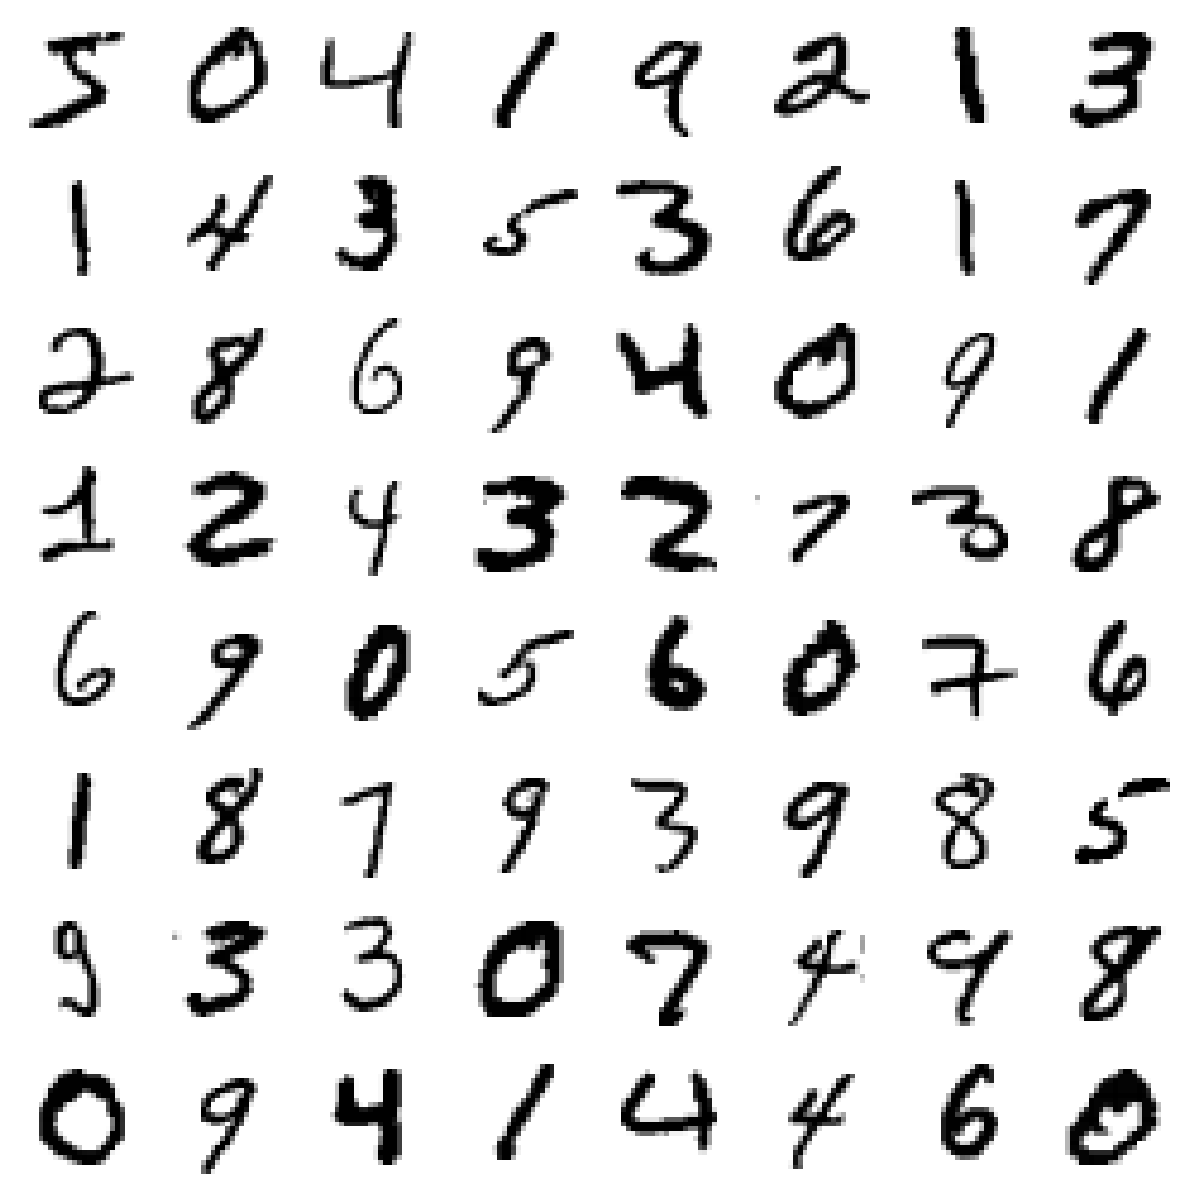 5 0 4 1 9 2 1 3
1 4 3 5 3 6 1 7
2 8 6 9 4 0 9 1
1 2 4 3 2 7 3 8
6 9 0 5 6 0 7 6
1 8 7 9 3 9 8 5
9 3 3 0 7 4 9 8
0 9 4 1 4 4 6 0